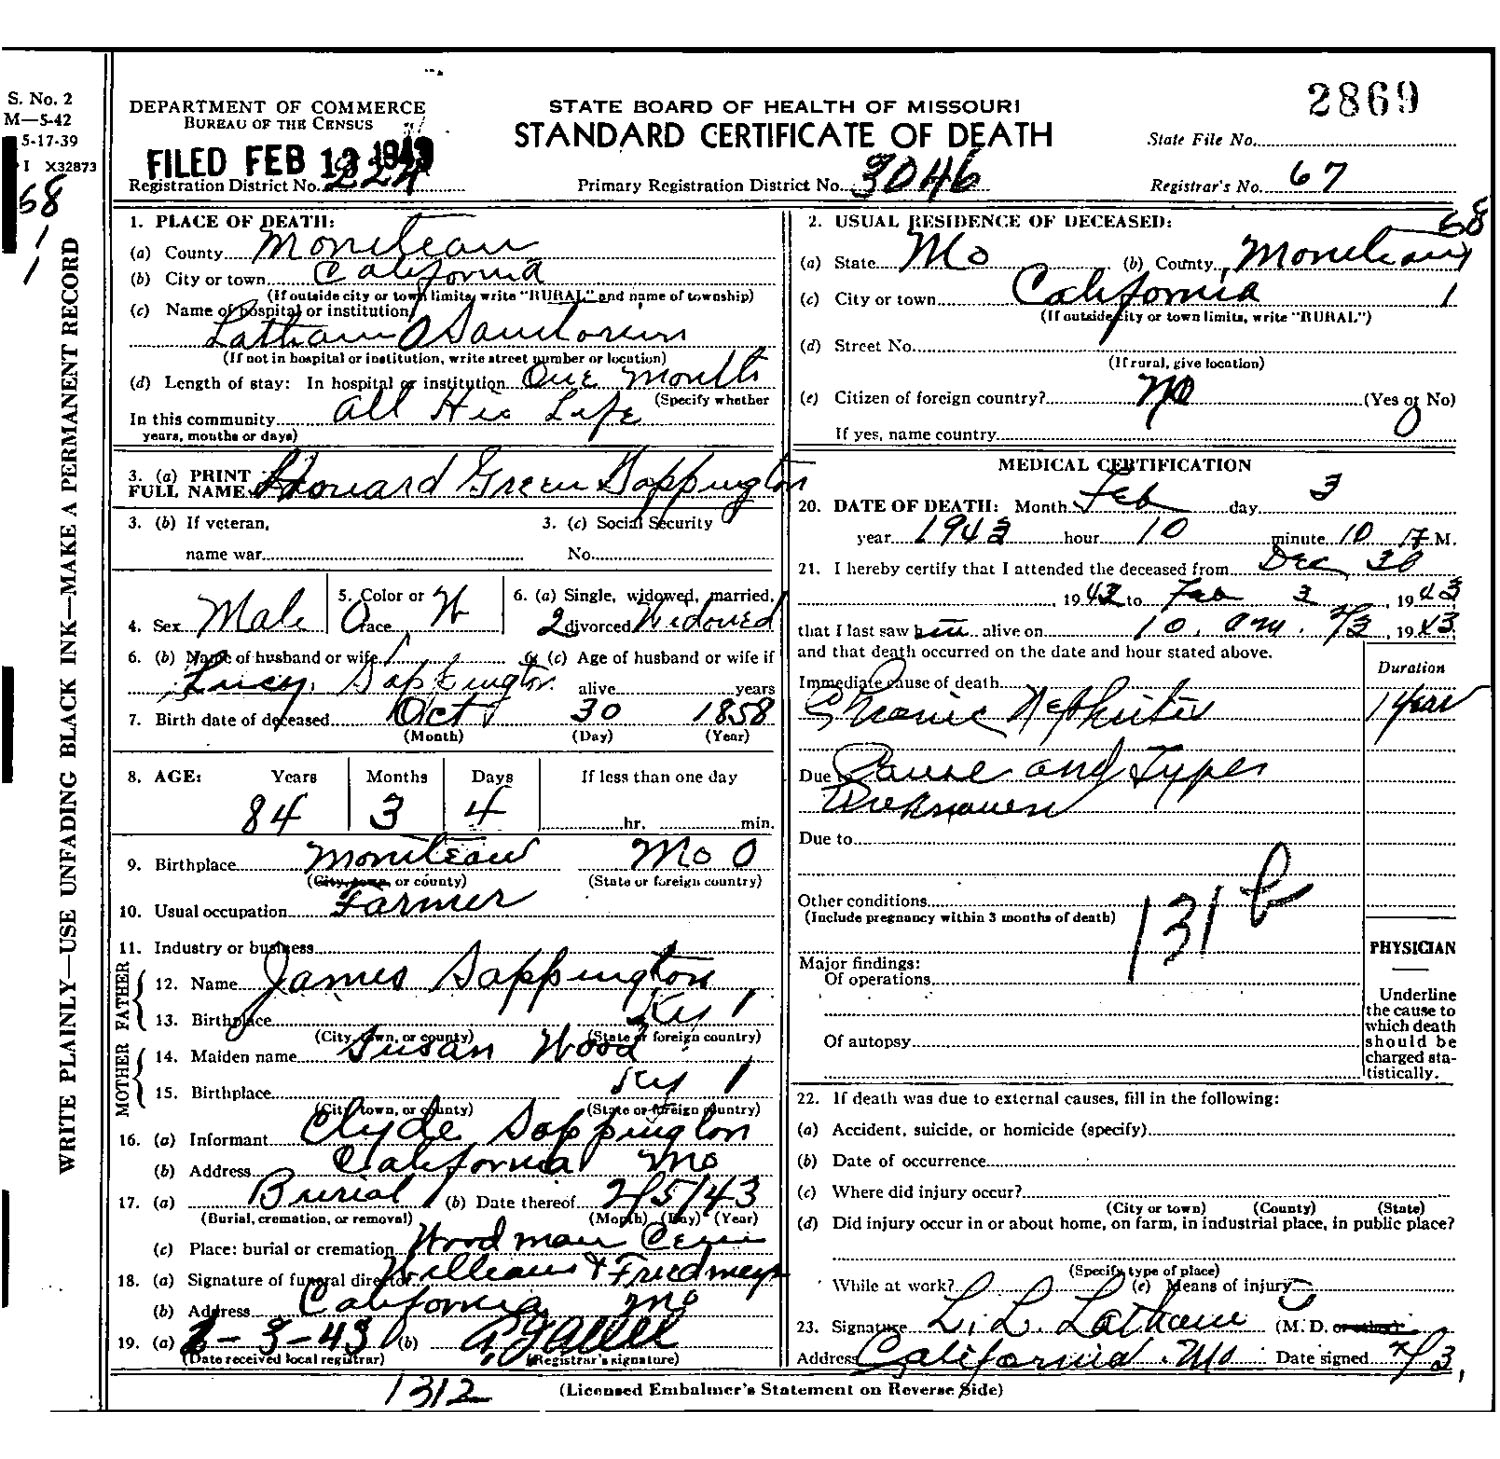 S. No. 2
M—5-42
5-17-39
I X32873
68
1
1
WRITE PLAINLY—USE UNFADING BLACK INK—MAKE A PERMANENT RECORD
DEPARTMENT OF COMMERCE
BUREAU OF THE CENSUS
STATE BOARD OF HEALTH OF MISSOURI
STANDARD CERTIFICATE OF DEATH
2869
State File No.
FILED FEB 13 1943
Registration District No. 224
Primary Registration District No. 3046
Registrar's No. 67
1. PLACE OF DEATH:
(a) County Moniteau
(b) City or town California
(If outside city or town limits, write "RURAL" and name of township)
(c) Name of hospital or institution
Latham Sanitorium
(If not in hospital or institution, write street number or location)
(d) Length of stay: In hospital or institution One month
(Specify whether
In this community all His Life
years, months or days)
3. (a) PRINT
FULL NAME Howard Green Sappington
3. (b) If veteran,
name war
3. (c) Social Security
No.
4. Sex Male
5. Color or
race W
6. (a) Single, widowed, married,
2 divorced Widowed
6. (b) Name of husband or wife
Lucy Sappington
6. (c) Age of husband or wife if
alive years
7. Birth date of deceased Oct 30 1858
(Month) (Day) (Year)
8. AGE: Years Months Days If less than one day
84 3 4 hr. min.
9. Birthplace Moniteau Mo 0
(City, town, or county) (State or foreign country)
10. Usual occupation Farmer
11. Industry or business
FATHER
12. Name James Sappington
13. Birthplace Ky 1
(City, town, or county) (State or foreign country)
MOTHER
14. Maiden name Susan Wood
15. Birthplace Ky 1
(City, town, or county) (State or foreign country)
16. (a) Informant Clyde Sappington
(b) Address California Mo
17. (a) Burial (b) Date thereof 2/5/43
(Burial, cremation, or removal) (Month) (Day) (Year)
(c) Place: burial or cremation Woodman Cem
18. (a) Signature of funeral director Williams & Friedmeyer
(b) Address California Mo
19. (a) 2-3-43 (b)
(Date received local registrar) (Registrar's signature)
2. USUAL RESIDENCE OF DECEASED:
68
(a) State Mo (b) County Moniteau
(c) City or town California 1
(If outside city or town limits, write "RURAL")
(d) Street No.
(If rural, give location)
(e) Citizen of foreign country? No (Yes or No)
0
If yes, name country
MEDICAL CERTIFICATION
20. DATE OF DEATH: Month Feb day 3
year 1943 hour 10 minute 10 M.
21. I hereby certify that I attended the deceased from Dec, 30
, 1942 to Feb 3, 1943
that I last saw him alive on 10. am. 2/3, 1943
and that death occurred on the date and hour stated above.
Duration
Immediate cause of death
Chronic Nephritis 1 year
Due to Cause and Types
Unknown
Due to
Other conditions
(Include pregnancy within 3 months of death)
131 b
Major findings:
Of operations
Of autopsy
PHYSICIAN
Underline
the cause to
which death
should be
charged sta-
tistically.
22. If death was due to external causes, fill in the following:
(a) Accident, suicide, or homicide (specify)
(b) Date of occurrence
(c) Where did injury occur?
(City or town) (County) (State)
(d) Did injury occur in or about home, on farm, in industrial place, in public place?
(Specify type of place)
While at work? (e) Means of injury
23. Signature L. L. Latham (M. D. or other)
Address California, Mo Date signed 2/3,
1312
(Licensed Embalmer's Statement on Reverse Side)